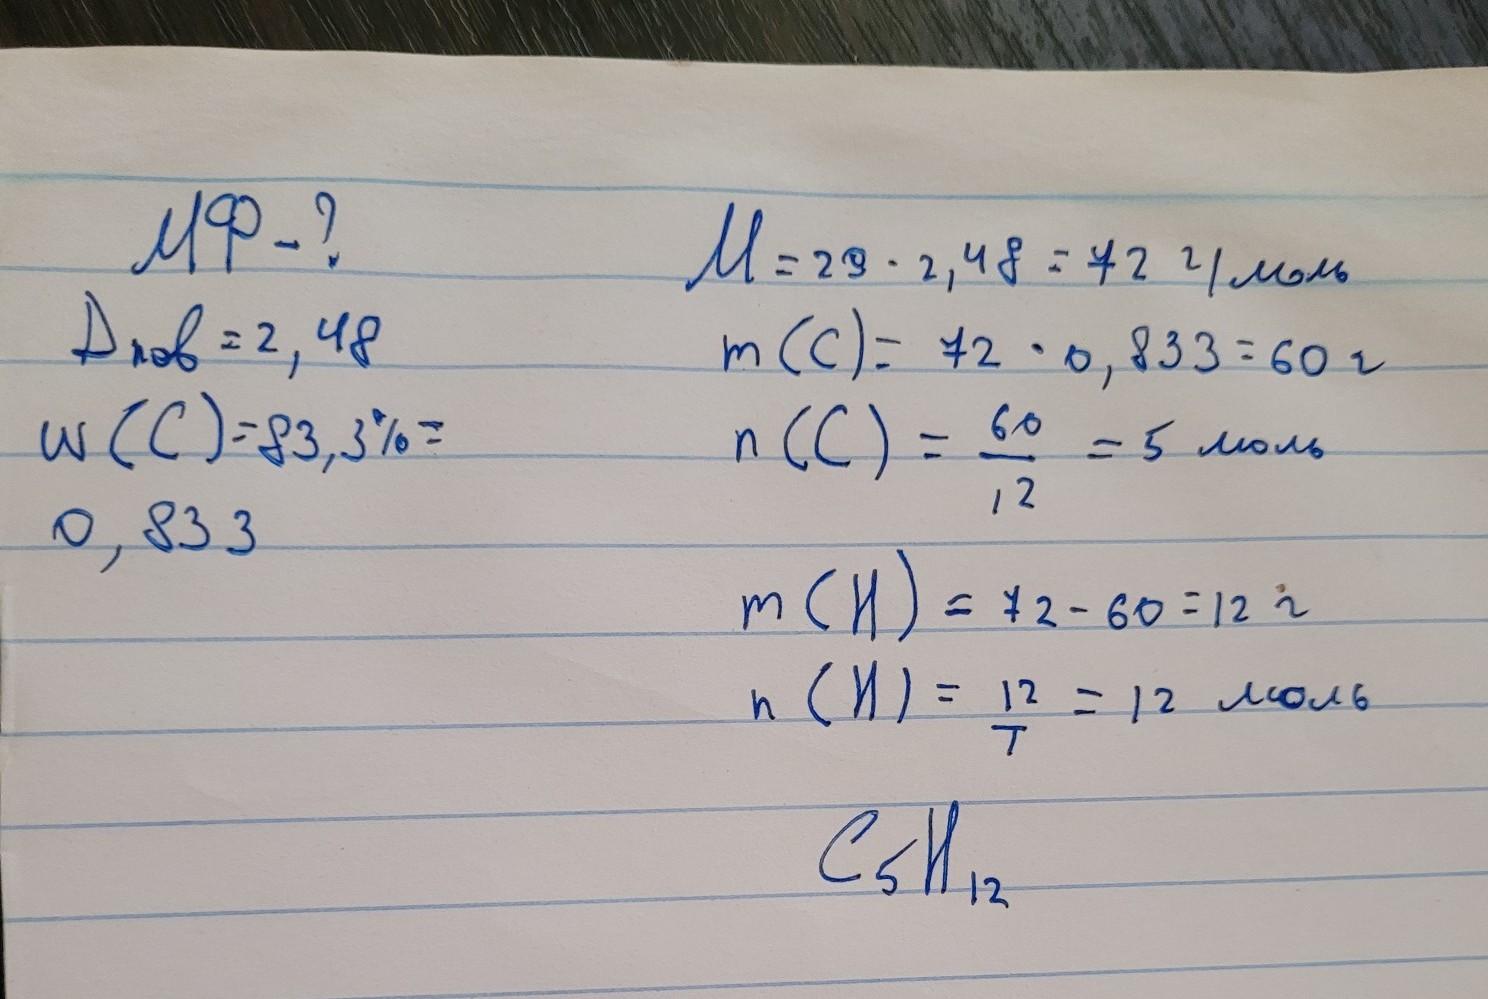 МФ - ?
Dпов = 2,48
w(C) = 83,3% =
0,833
M = 29 · 2,48 = 72 г/моль
m(C) = 72 · 0,833 = 60 г
n(C) = 60/12 = 5 моль
m(H) = 72 - 60 = 12 г
n(H) = 12/1 = 12 моль
C₅H₁₂